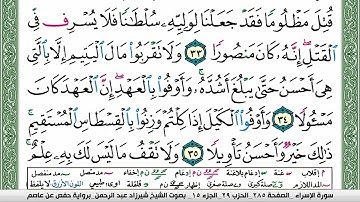 قُتِلَ مَظْلُومًا فَقَدْ جَعَلْنَا لِوَلِيِّهِۦ سُلْطَٰنًا فَلَا يُسْرِف فِّى
ٱلْقَتْلِ إِنَّهُۥ كَانَ مَنصُورًا ٣٣ وَلَا تَقْرَبُوا۟ مَالَ ٱلْيَتِيمِ إِلَّا بِٱلَّتِى
هِىَ أَحْسَنُ حَتَّىٰ يَبْلُغَ أَشُدَّهُۥ وَأَوْفُوا۟ بِٱلْعَهْدِ إِنَّ ٱلْعَهْدَ كَانَ
مَسْـُٔولًا ٣٤ وَأَوْفُوا۟ ٱلْكَيْلَ إِذَا كِلْتُمْ وَزِنُوا۟ بِٱلْقِسْطَاسِ ٱلْمُسْتَقِيمِ
ذَٰلِكَ خَيْرٌ وَأَحْسَنُ تَأْوِيلًا ٣٥ وَلَا تَقْفُ مَا لَيْسَ لَكَ بِهِۦ عِلْمٌ
سورة الإسراء - الصفحة ٢٨٥ الجزء ١٥ - بصوت الشيخ شيرزاد عبد الرحمن - برواية حفص عن عاصم